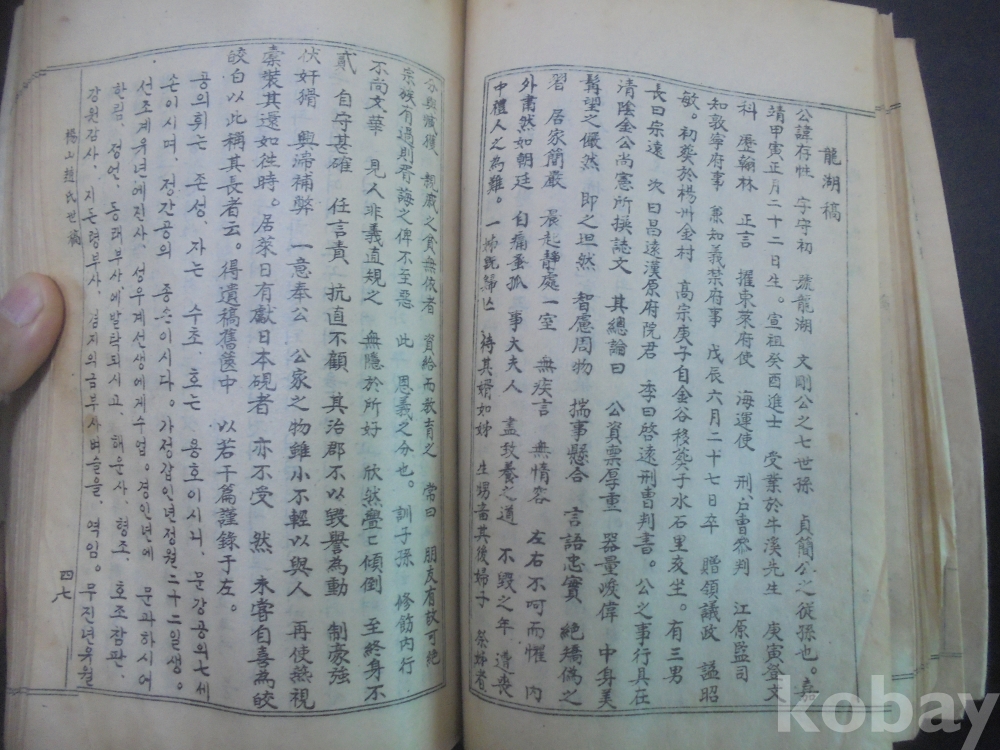 龍湖稿
公諱存性 字守初 號龍湖 文剛公之七世孫 貞簡公之從孫也。嘉
靖甲寅正月二十二日生。宣祖癸酉進士 受業於牛溪先生 庚寅登文
科 歷翰林 正言 擢東萊府使 海運使 刑、戶曹參判 江原監司
知敦寧府事 兼知義禁府事 戊辰六月二十七日卒 贈領議政 謚昭
敏。初葬於楊州金村 高宗庚子自金谷移葬于水石里亥坐。有三男
長曰宗遠 次曰昌遠漢原府院君 季曰啓遠刑曹判書。公之事行具在
清陰金公尚憲所撰誌文 其總論曰 公資稟厚重 器量峻偉 中身美
髯望之儼然 即之坦然 智慮周物 揣事懸合 言語忠實 絶矯偽之
習 居家簡嚴 晨起靜處一室 無疾言 無情容 左右不呵而懼 內
外肅然如朝廷 自痛蚤孤 事大夫人 盡敎養之道 不毀之年 遭喪
中禮人之為難。一姉既歸亡 待其婿如姊 生甥畜其後婦子 祭姊者
分與臧獲 親戚之貧無依者 資給而教育之 常曰 朋友有故可絶
宗族有過則胥誨之俾不至惡 此 恩義之分也。 訓子孫 修飭內行
不尚文華 見人非義直規之 無隱於所好 欣然疊亡傾倒 至終身不
貳 自守甚確 任言責 抗直不顧 其治郡不以毀譽為動 制豪強
伏奸猾 興滯補弊 一意奉公 公家之物雖小不輕以與人 再使燕視
橐裝其還如往時。居萊日有獻日本硯者 亦不受 然 未嘗自喜為皎
皎白以此稱其長者云。得遺稿舊篋中 以若干篇謹錄于左。
공의휘는 존성, 자는 수초, 호는 용호이시니, 문강공의七세
손이시며, 정간공의 종손이시다。가정갑인년정월二十二일생。
선조계유년에진사、성우계선생에게수업。경인년에 문과하시어
한림、정언、동래부사에발탁되시고、해운사、형조、호조참판、
강원감사、지돈령부사、겸지의금부사벼슬을、역임。무진년유월
楊山趙氏世稿
四七
kobay